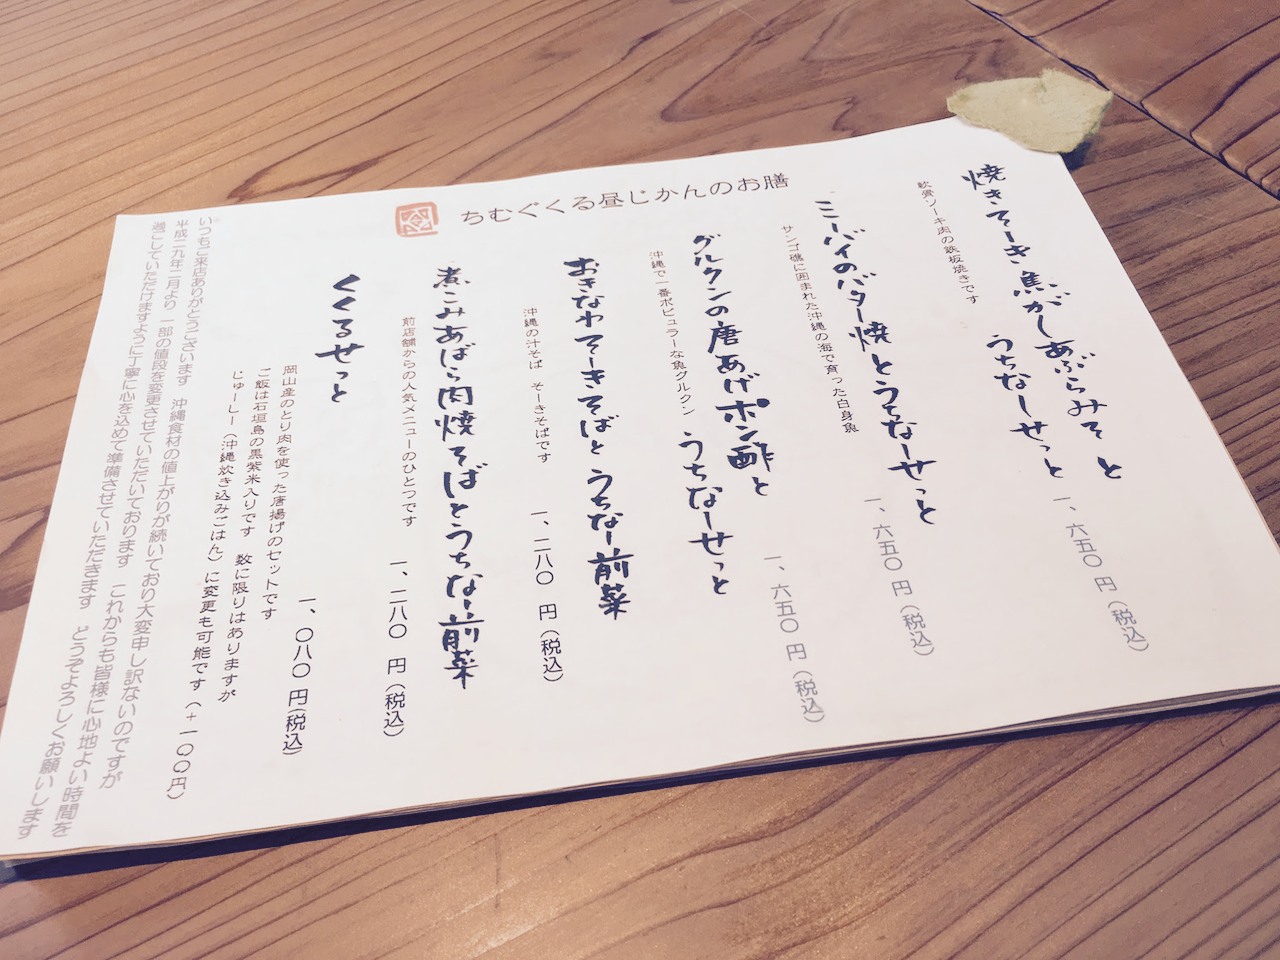 ちむぐくる昼じかんのお膳
焼きそーき焦がしあぶらみそと
うちなーせっと
軟骨ソーキ肉の鉄板焼きです
一、六五〇 円(税込)
ミーバイのバター焼とうちなーせっと
サンゴ礁に囲まれた沖縄の海で育った白身魚
一、六五〇 円(税込)
グルクンの唐あげポン酢と
うちなーせっと
沖縄で一番ポピュラーな魚グルクン
一、六五〇 円(税込)
おきなわそーきそばとうちなー前菜
沖縄の汁そば そーきそばです
一、二八〇 円(税込)
煮こみあばら肉焼そばとうちなー前菜
前店舗からの人気メニューのひとつです
一、二八〇 円(税込)
くくるせっと
岡山産のとり肉を使った唐揚げのセットです
一、〇八〇 円(税込)
ご飯は石垣島の黒紫米入りです 数に限りはありますが
じゅーしー(沖縄炊き込みごはん)に変更も可能です(+一〇〇円)
いつもご来店ありがとうございます 沖縄食材の値上がりが続いており大変申し訳ないのですが
平成二九年二月より 一部の値段を変更させていただいております これからも皆様に心地よい時間を
過ごしていただけますように丁寧に心を込めて準備させていただきます どうぞよろしくお願いします